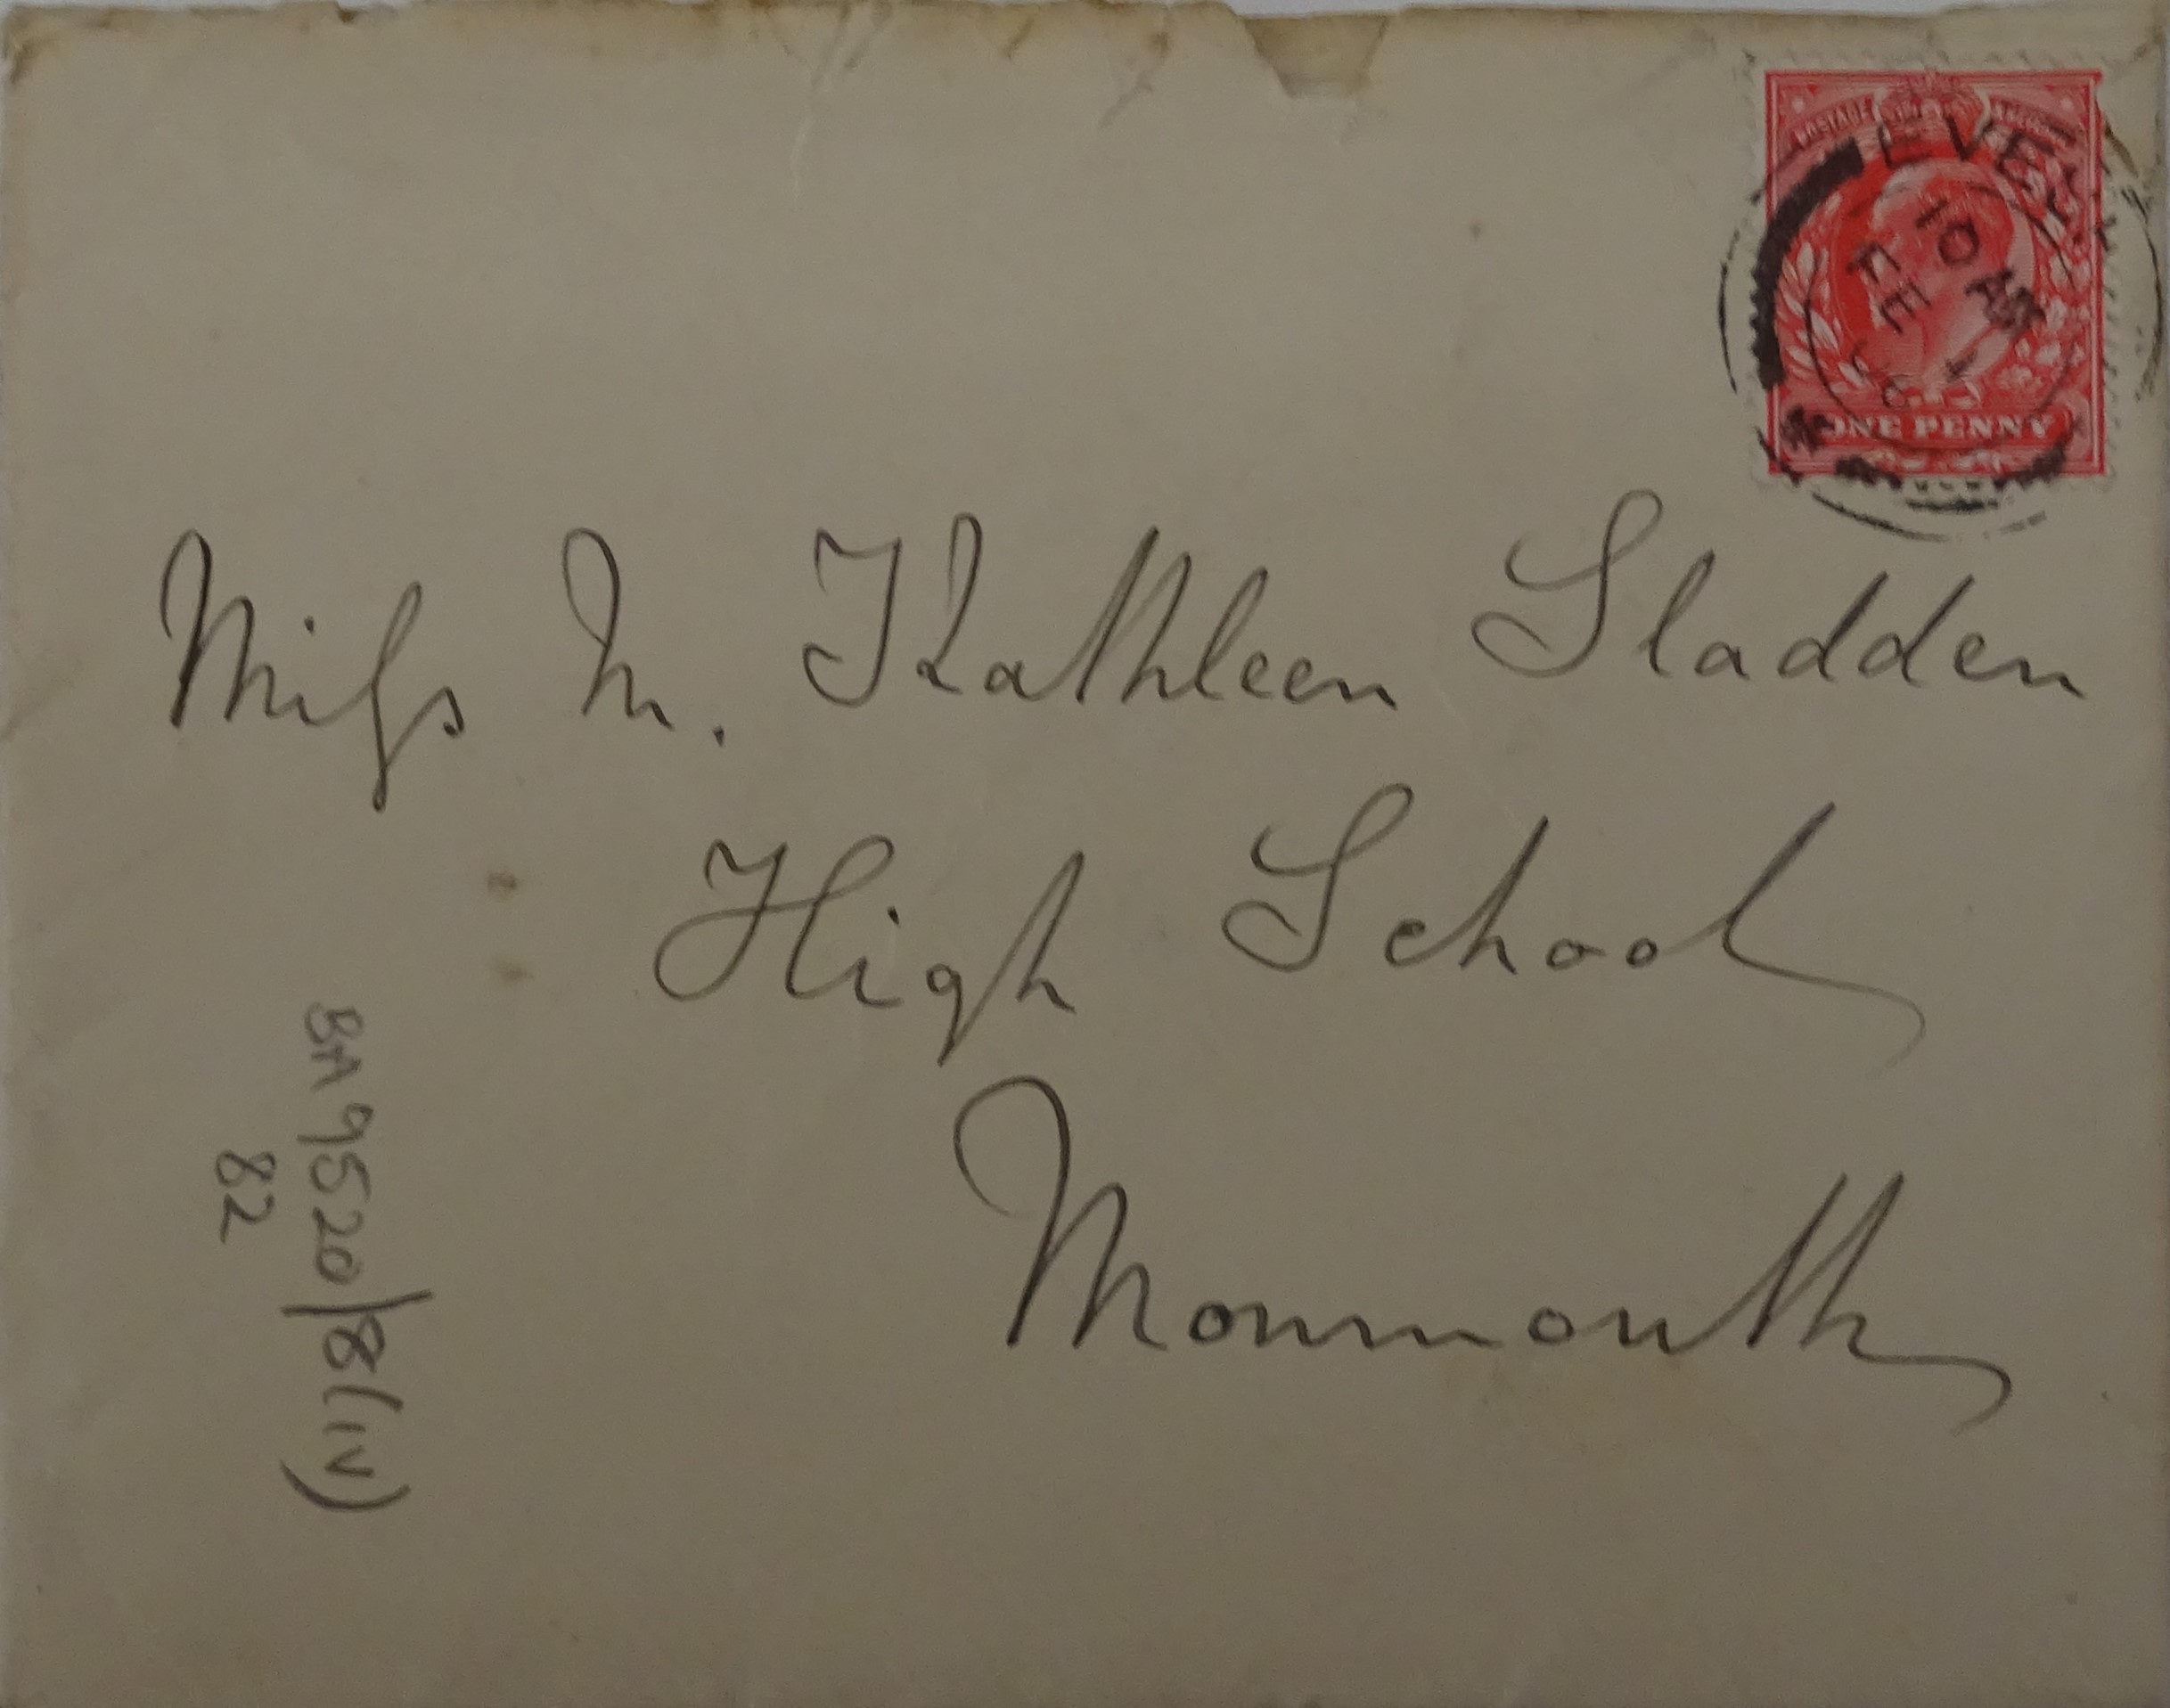 POSTAGE
EVES
10 AM
FE
ONE PENNY
Miss M. Kathleen Sladden
High School
Monmouth
BA 9520/8(IV)
82